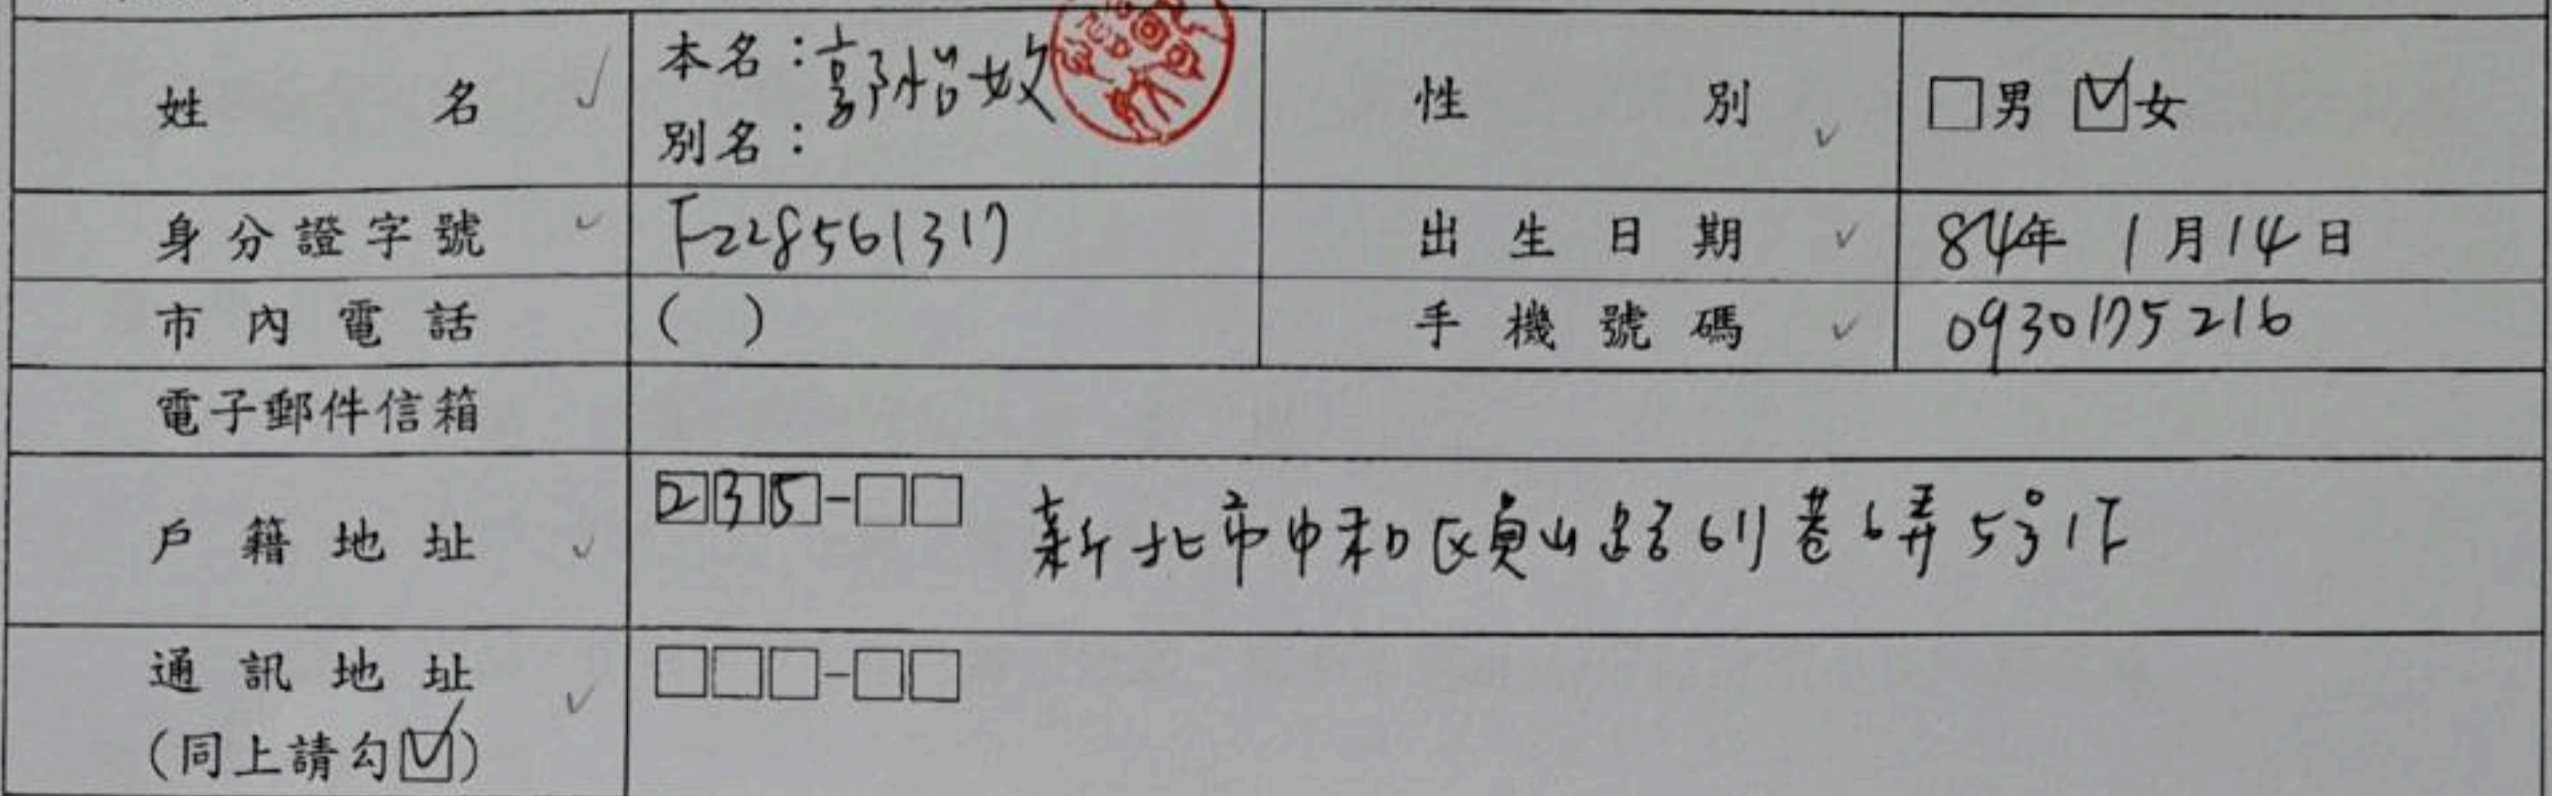 姓名 本名：郭怡妏 性別 □男 ☑女
別名：
身分證字號 F228561317 出生日期 84年1月14日
市內電話 ( ) 手機號碼 0930175216
電子郵件信箱
戶籍地址 235-□□ 新北市中和區員山路611巷6弄5號1F
通訊地址 □□□-□□
(同上請勾☑)